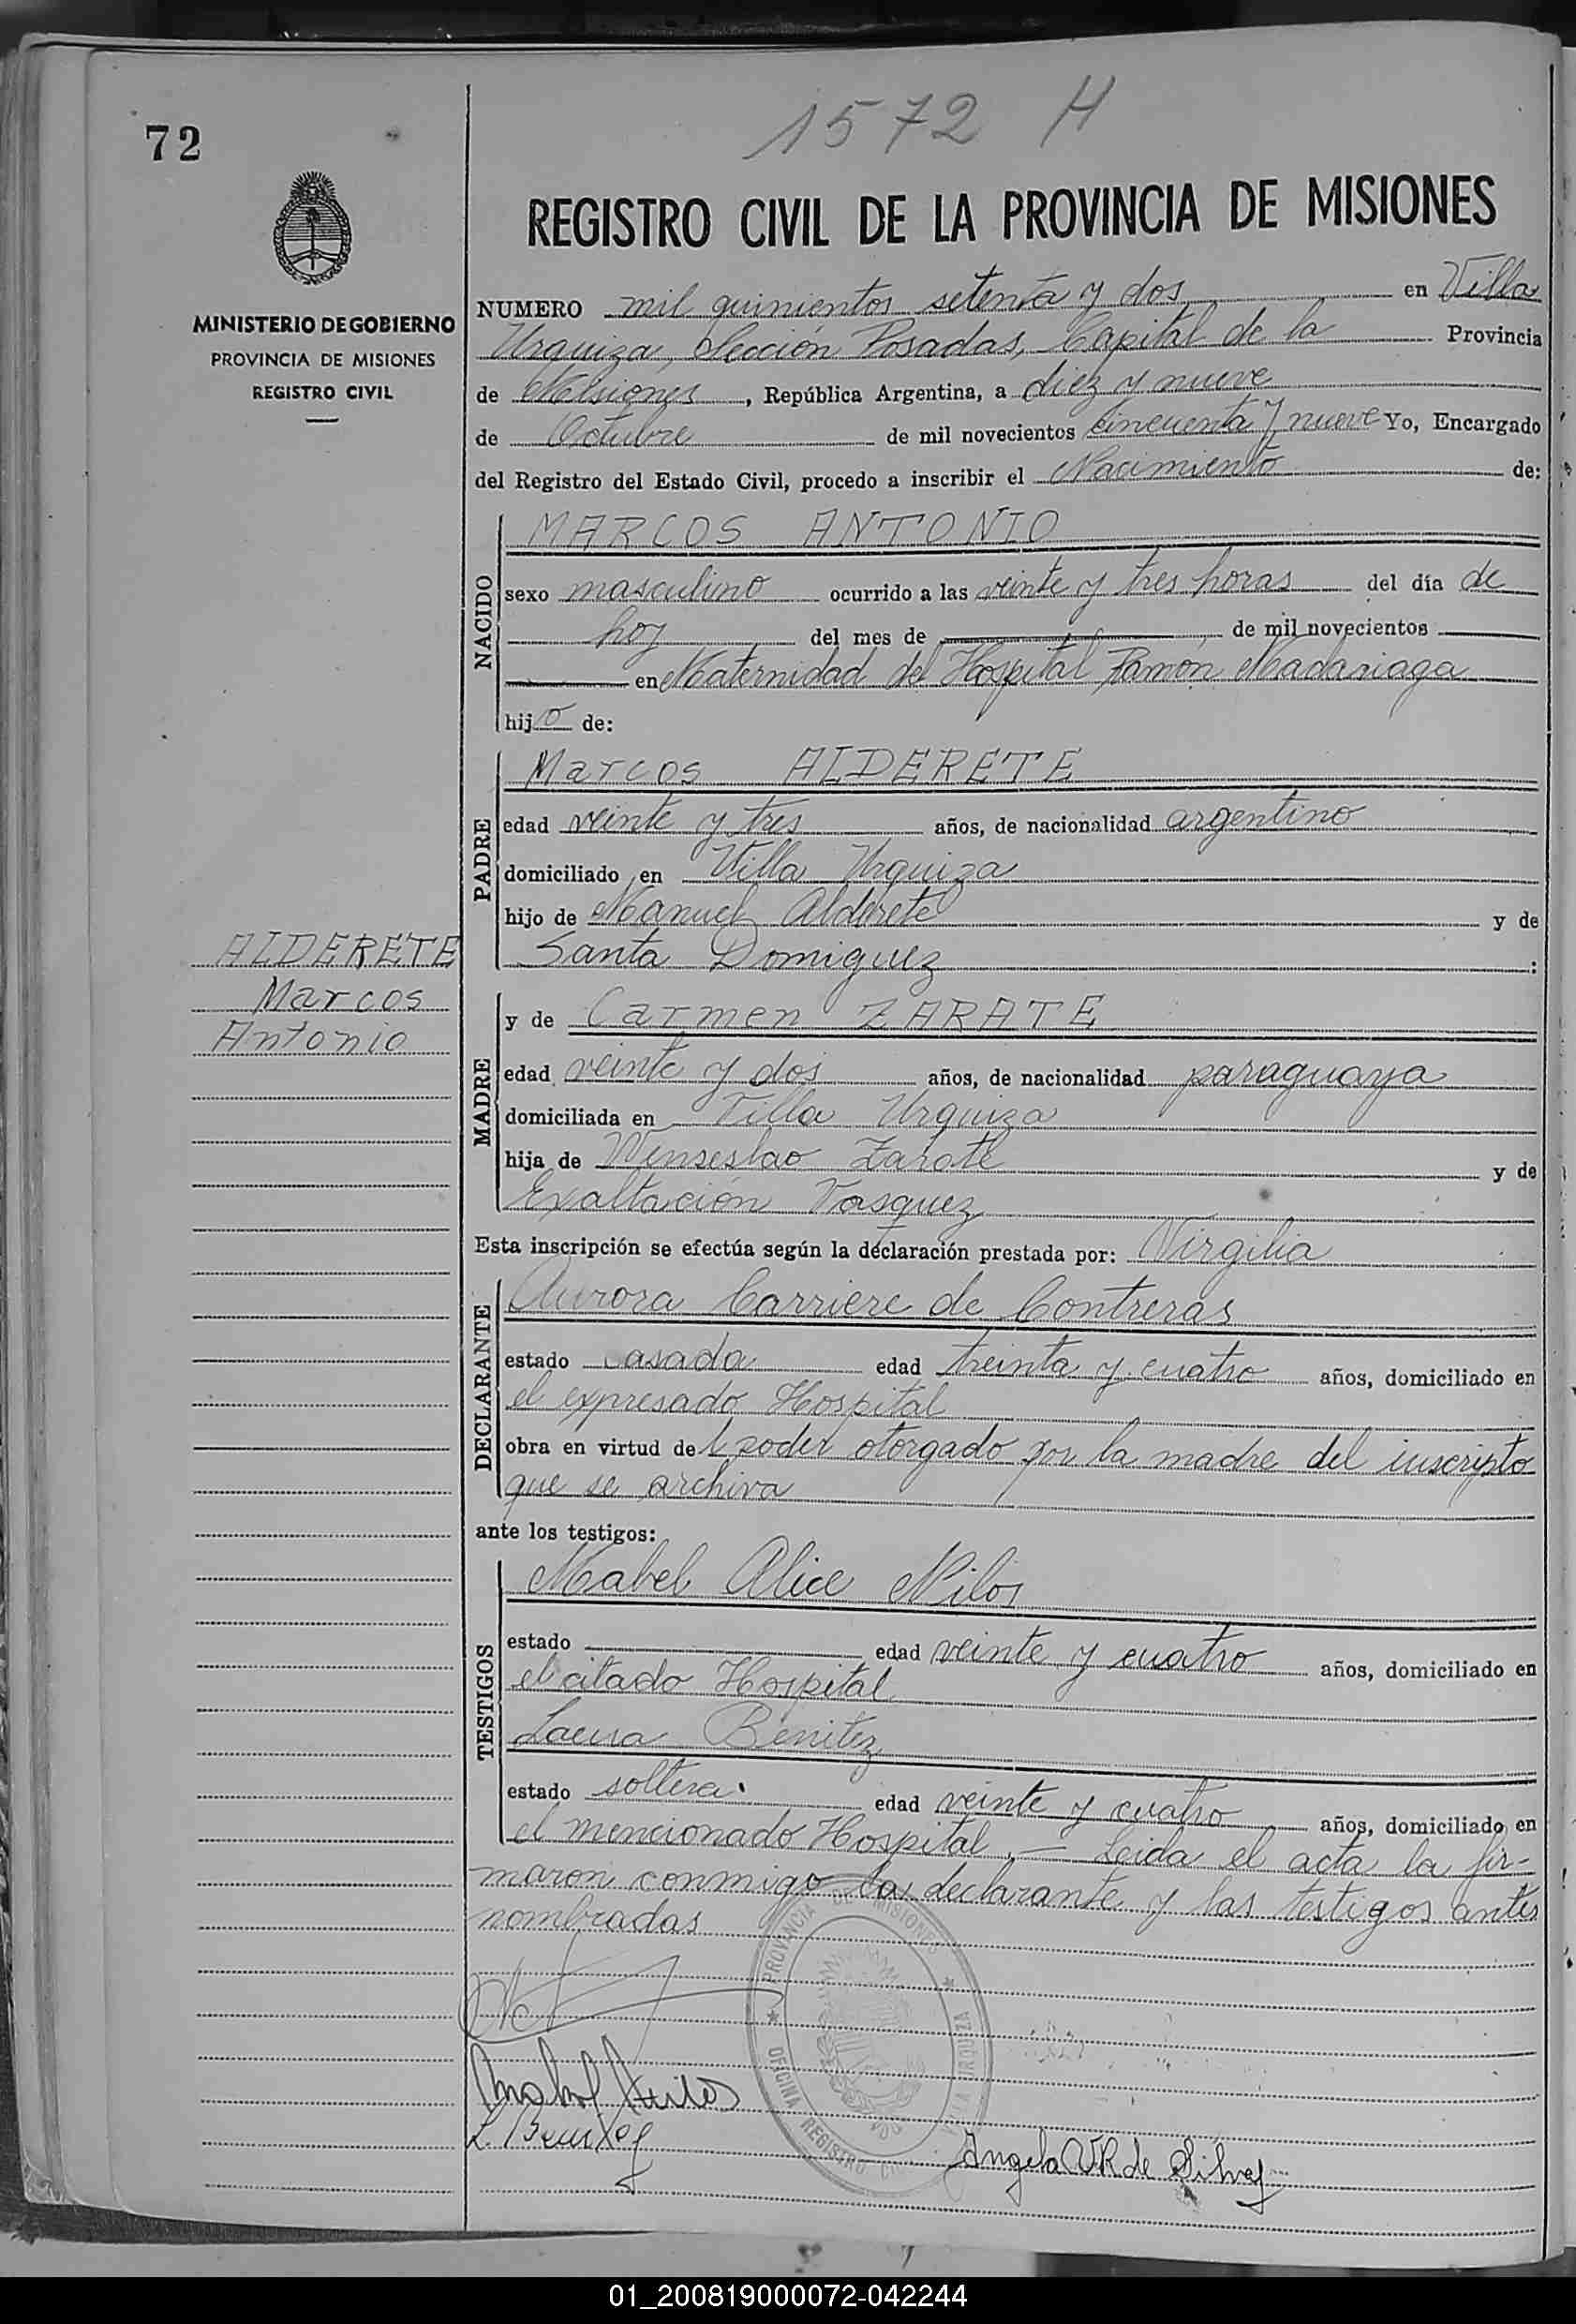 1572 H
72
MINISTERIO DE GOBIERNO
PROVINCIA DE MISIONES
REGISTRO CIVIL
REGISTRO CIVIL DE LA PROVINCIA DE MISIONES
NUMERO mil quinientos setenta y dos en Villa
Urquiza, Sección Posadas, Capital de la Provincia
de Misiones, República Argentina, a diez y nueve
de Octubre de mil novecientos cincuenta y nueve Yo, Encargado
del Registro del Estado Civil, procedo a inscribir el Nacimiento de:
NACIDO
MARCOS ANTONIO
sexo masculino ocurrido a las veinte y tres horas del día de
hoy del mes de de mil novecientos
en Maternidad del Hospital Ramón Madariaga
hijo de:
PADRE
Marcos ALDERETE
edad veinte y tres años, de nacionalidad argentino
domiciliado en Villa Urquiza
hijo de Manuel Alderete y de
Santa Domiguez :
ALDERETE
Marcos
Antonio
MADRE
y de Carmen ZARATE
edad veinte y dos años, de nacionalidad paraguaya
domiciliada en Villa Urquiza
hija de Wenseslao Zarate y de
Exaltación Vasquez
Esta inscripción se efectúa según la declaración prestada por: Virgilia
DECLARANTE
Aurora Carriere de Contreras
estado casada edad treinta y cuatro años, domiciliado en
el expresado Hospital
obra en virtud del poder otorgado por la madre del inscripto
que se archiva
ante los testigos:
TESTIGOS
Mabel Alice Nilos
estado edad veinte y cuatro años, domiciliado en
el citado Hospital
Laura Benitez
estado soltera. edad veinte y cuatro años, domiciliado en
el mencionado Hospital.— Leida el acta la fir-
maron conmigo la declarante y las testigos antes
nombradas
PROVINCIA DE MISIONES
OFICINA REGISTRO CIVIL VILLA URQUIZA
L. Benitez
Angela V R de Silva
01_200819000072-042244